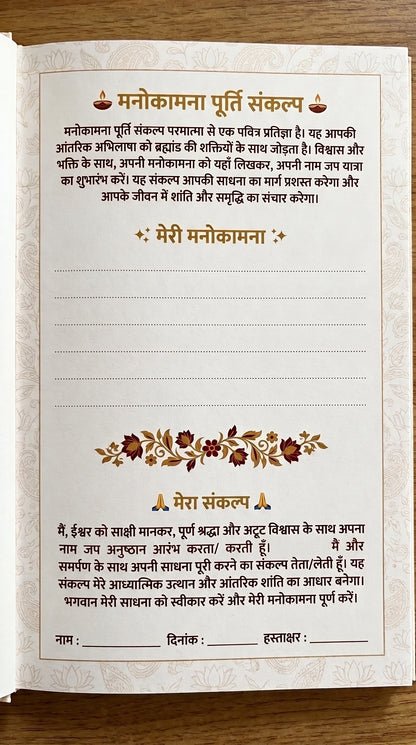 मनोकामना पूर्ति संकल्प
मनोकामना पूर्ति संकल्प परमात्मा से एक पवित्र प्रतिज्ञा है। यह आपकी
आंतरिक अभिलाषा को ब्रह्मांड की शक्तियों के साथ जोड़ता है। विश्वास और
भक्ति के साथ, अपनी मनोकामना को यहाँ लिखकर, अपनी नाम जप यात्रा
का शुभारंभ करें। यह संकल्प आपकी साधना का मार्ग प्रशस्त करेगा और
आपके जीवन में शांति और समृद्धि का संचार करेगा।
मेरी मनोकामना
मेरा संकल्प
मैं, ईश्वर को साक्षी मानकर, पूर्ण श्रद्धा और अटूट विश्वास के साथ अपना
नाम जप अनुष्ठान आरंभ करता/ करती हूँ। मैं और
समर्पण के साथ अपनी साधना पूरी करने का संकल्प तेता/लेती हूँ। यह
संकल्प मेरे आध्यात्मिक उत्थान और आंतरिक शांति का आधार बनेगा।
भगवान मेरी साधना को स्वीकार करें और मेरी मनोकामना पूर्ण करें।
नाम : ____________ दिनांक : ________ हस्ताक्षर : _________